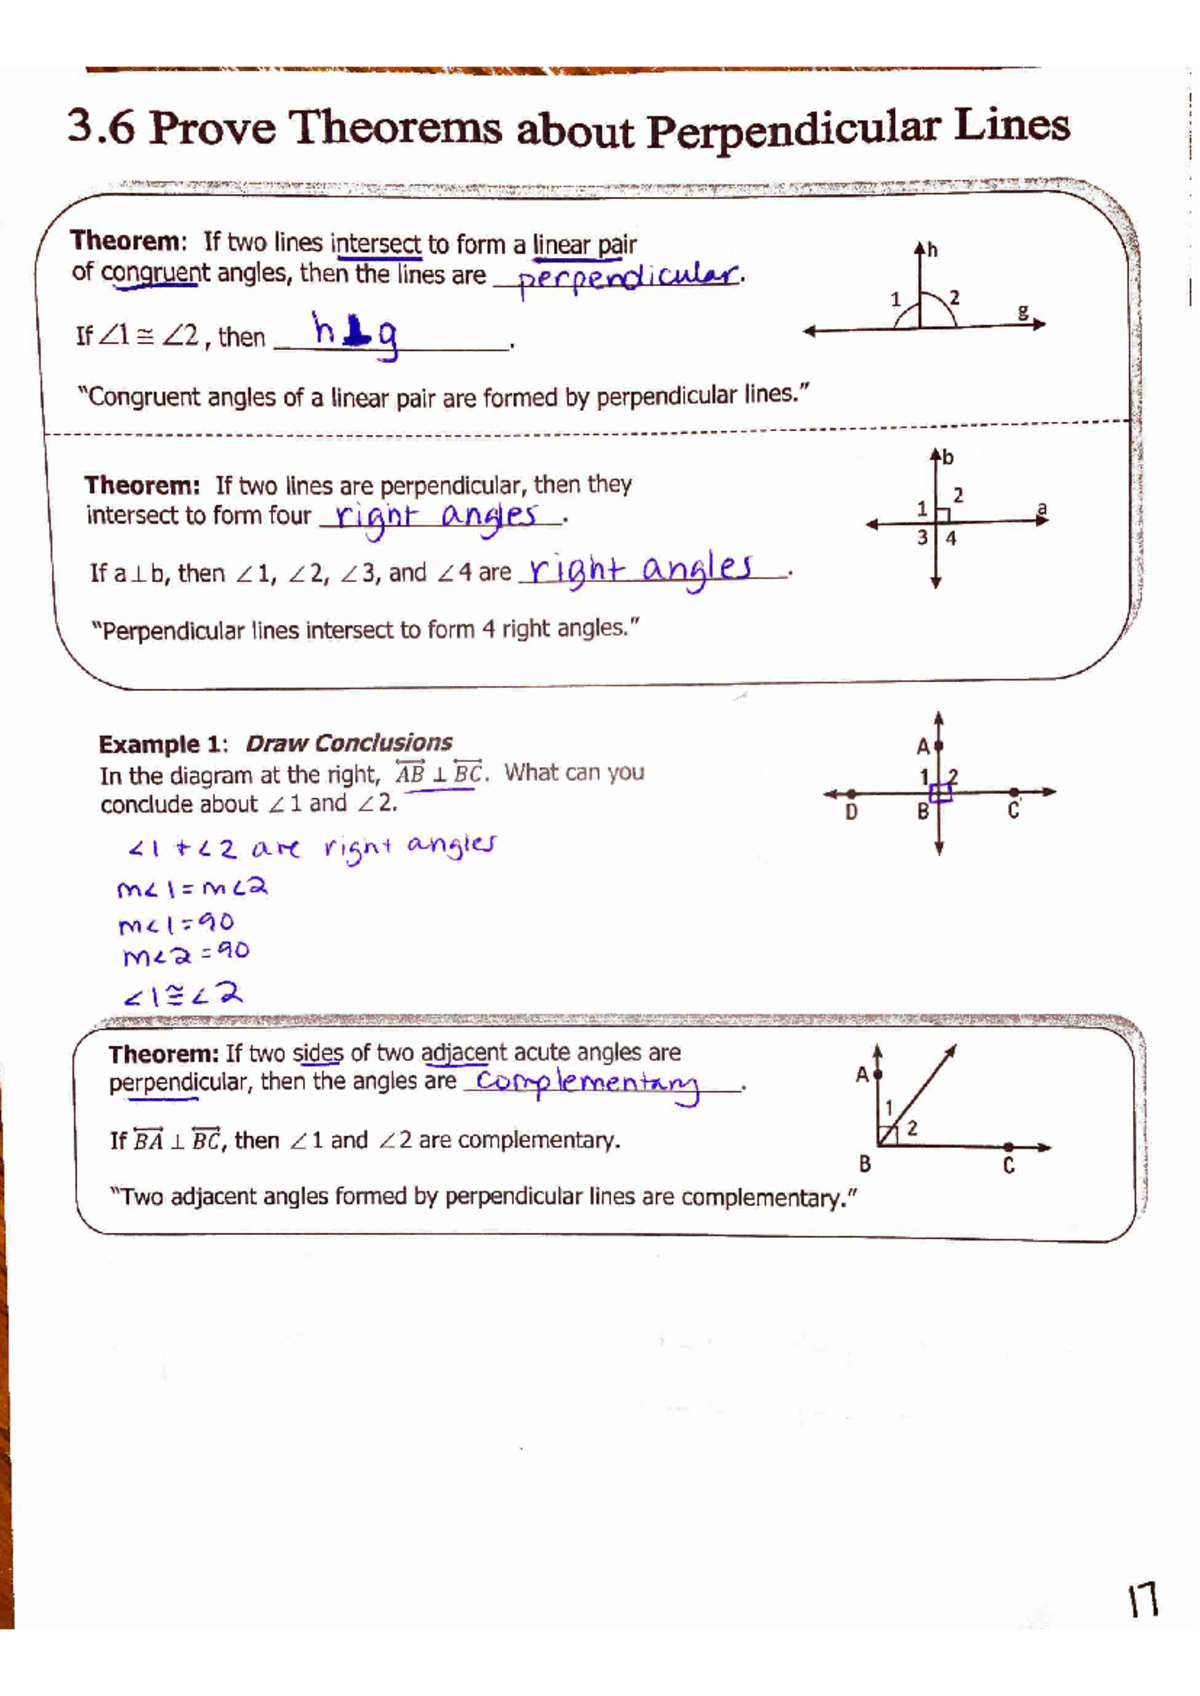 3.6 Prove Theorems about Perpendicular Lines
Theorem: If two lines intersect to form a linear pair
of congruent angles, then the lines are perpendicular.
If ∠1 ≅ ∠2, then h⊥g.
"Congruent angles of a linear pair are formed by perpendicular lines."
h
1 2
g
Theorem: If two lines are perpendicular, then they
intersect to form four right angles.
If a⊥b, then ∠1, ∠2, ∠3, and ∠4 are right angles.
"Perpendicular lines intersect to form 4 right angles."
b
1 2
a
3 4
Example 1: Draw Conclusions
In the diagram at the right, AB ⊥ BC. What can you
conclude about ∠1 and ∠2.
∠1 + ∠2 are right angles
m∠1 = m∠2
m∠1 = 90
m∠2 = 90
∠1 ≅ ∠2
A
1 2
D B C
Theorem: If two sides of two adjacent acute angles are
perpendicular, then the angles are complementary.
If BA ⊥ BC, then ∠1 and ∠2 are complementary.
"Two adjacent angles formed by perpendicular lines are complementary."
A
1
2
B C
17